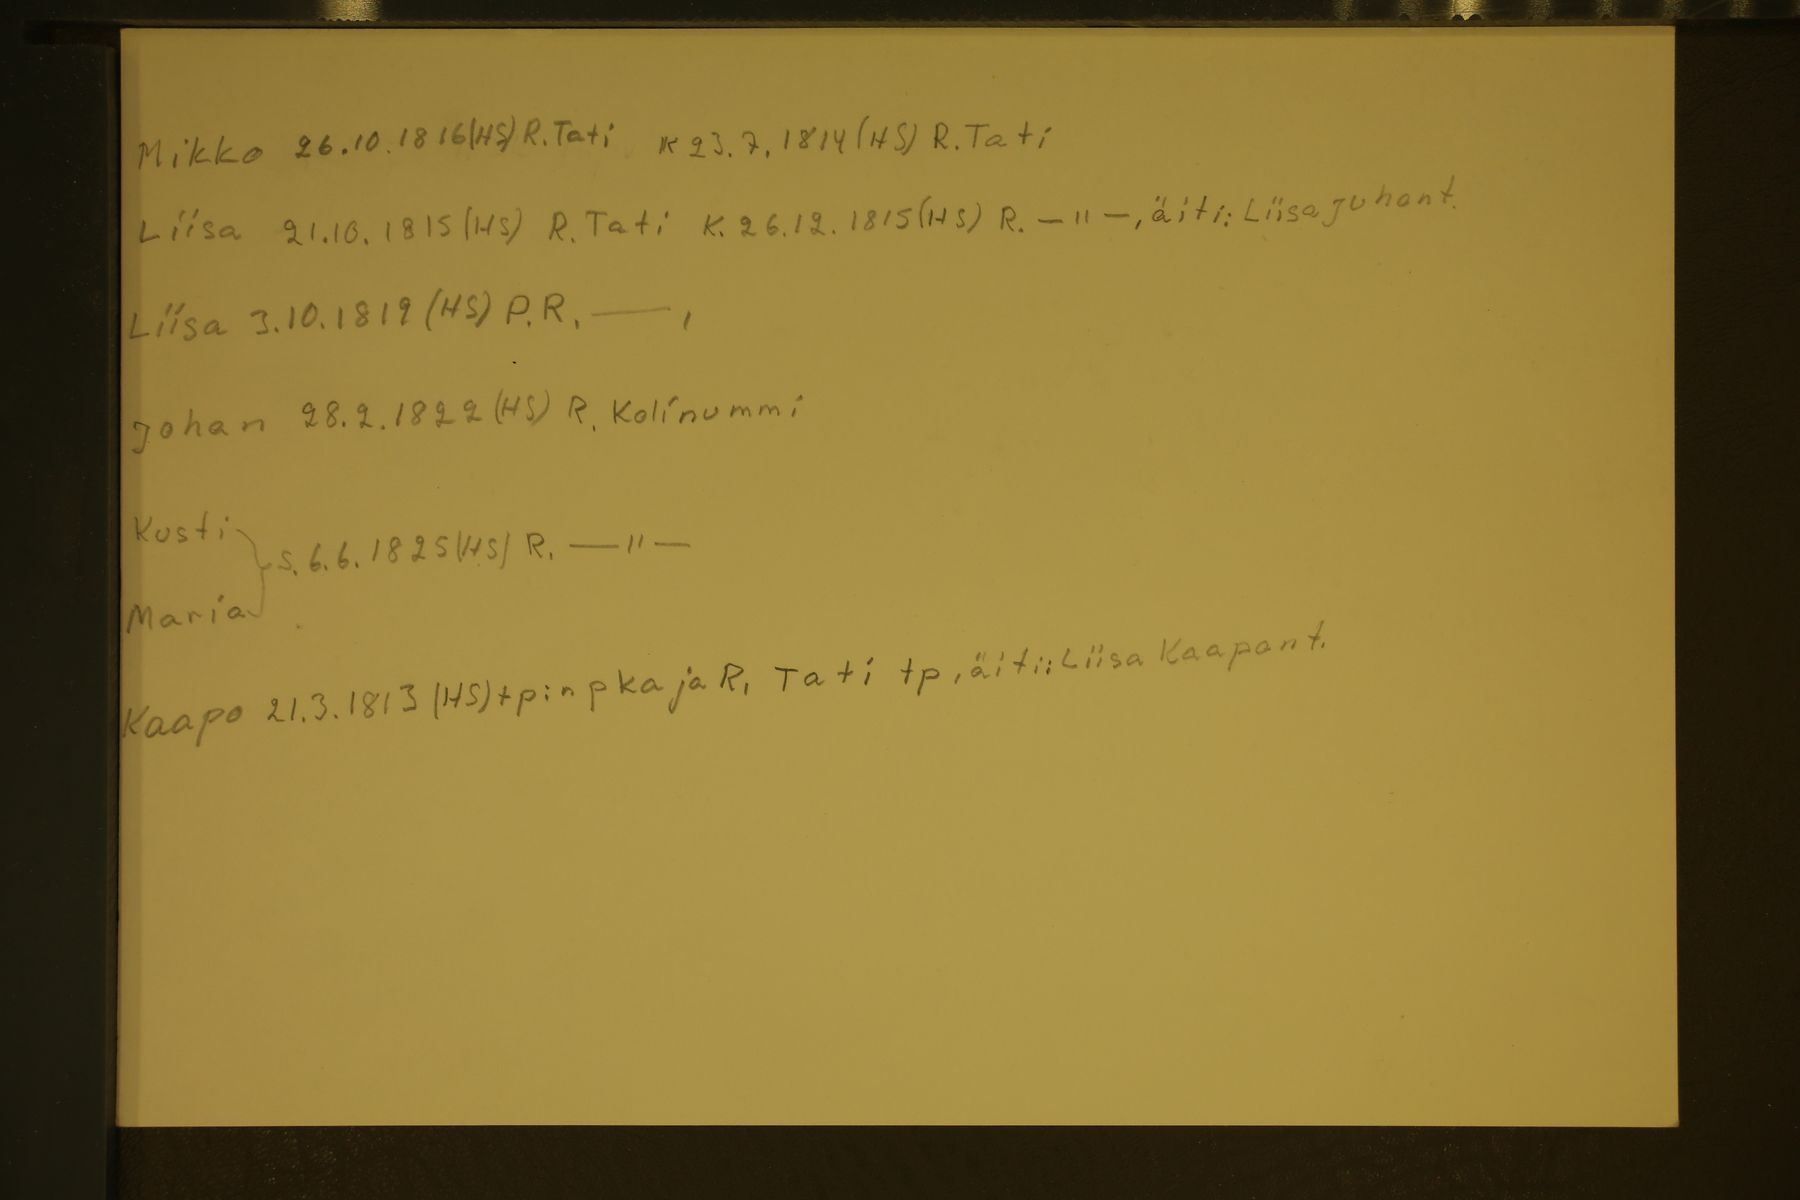 Mikko 26.10.1816(HS) R. Tati K 23.7.1814(HS) R. Tati
Liisa 21.10.1815(HS) R. Tati K. 26.12.1815(HS) R. — " —, äiti: Liisa Juhont.
Liisa 3.10.1819 (HS) P.R. —,
Johan 28.2.1822(HS) R. Kolinummi
Kusti
s. 6.6.1825(HS) R. — " —
Maria
Kaapo 21.3.1813 (HS) tp:n pka ja R. Tati tp, äiti: Liisa Kaapont.